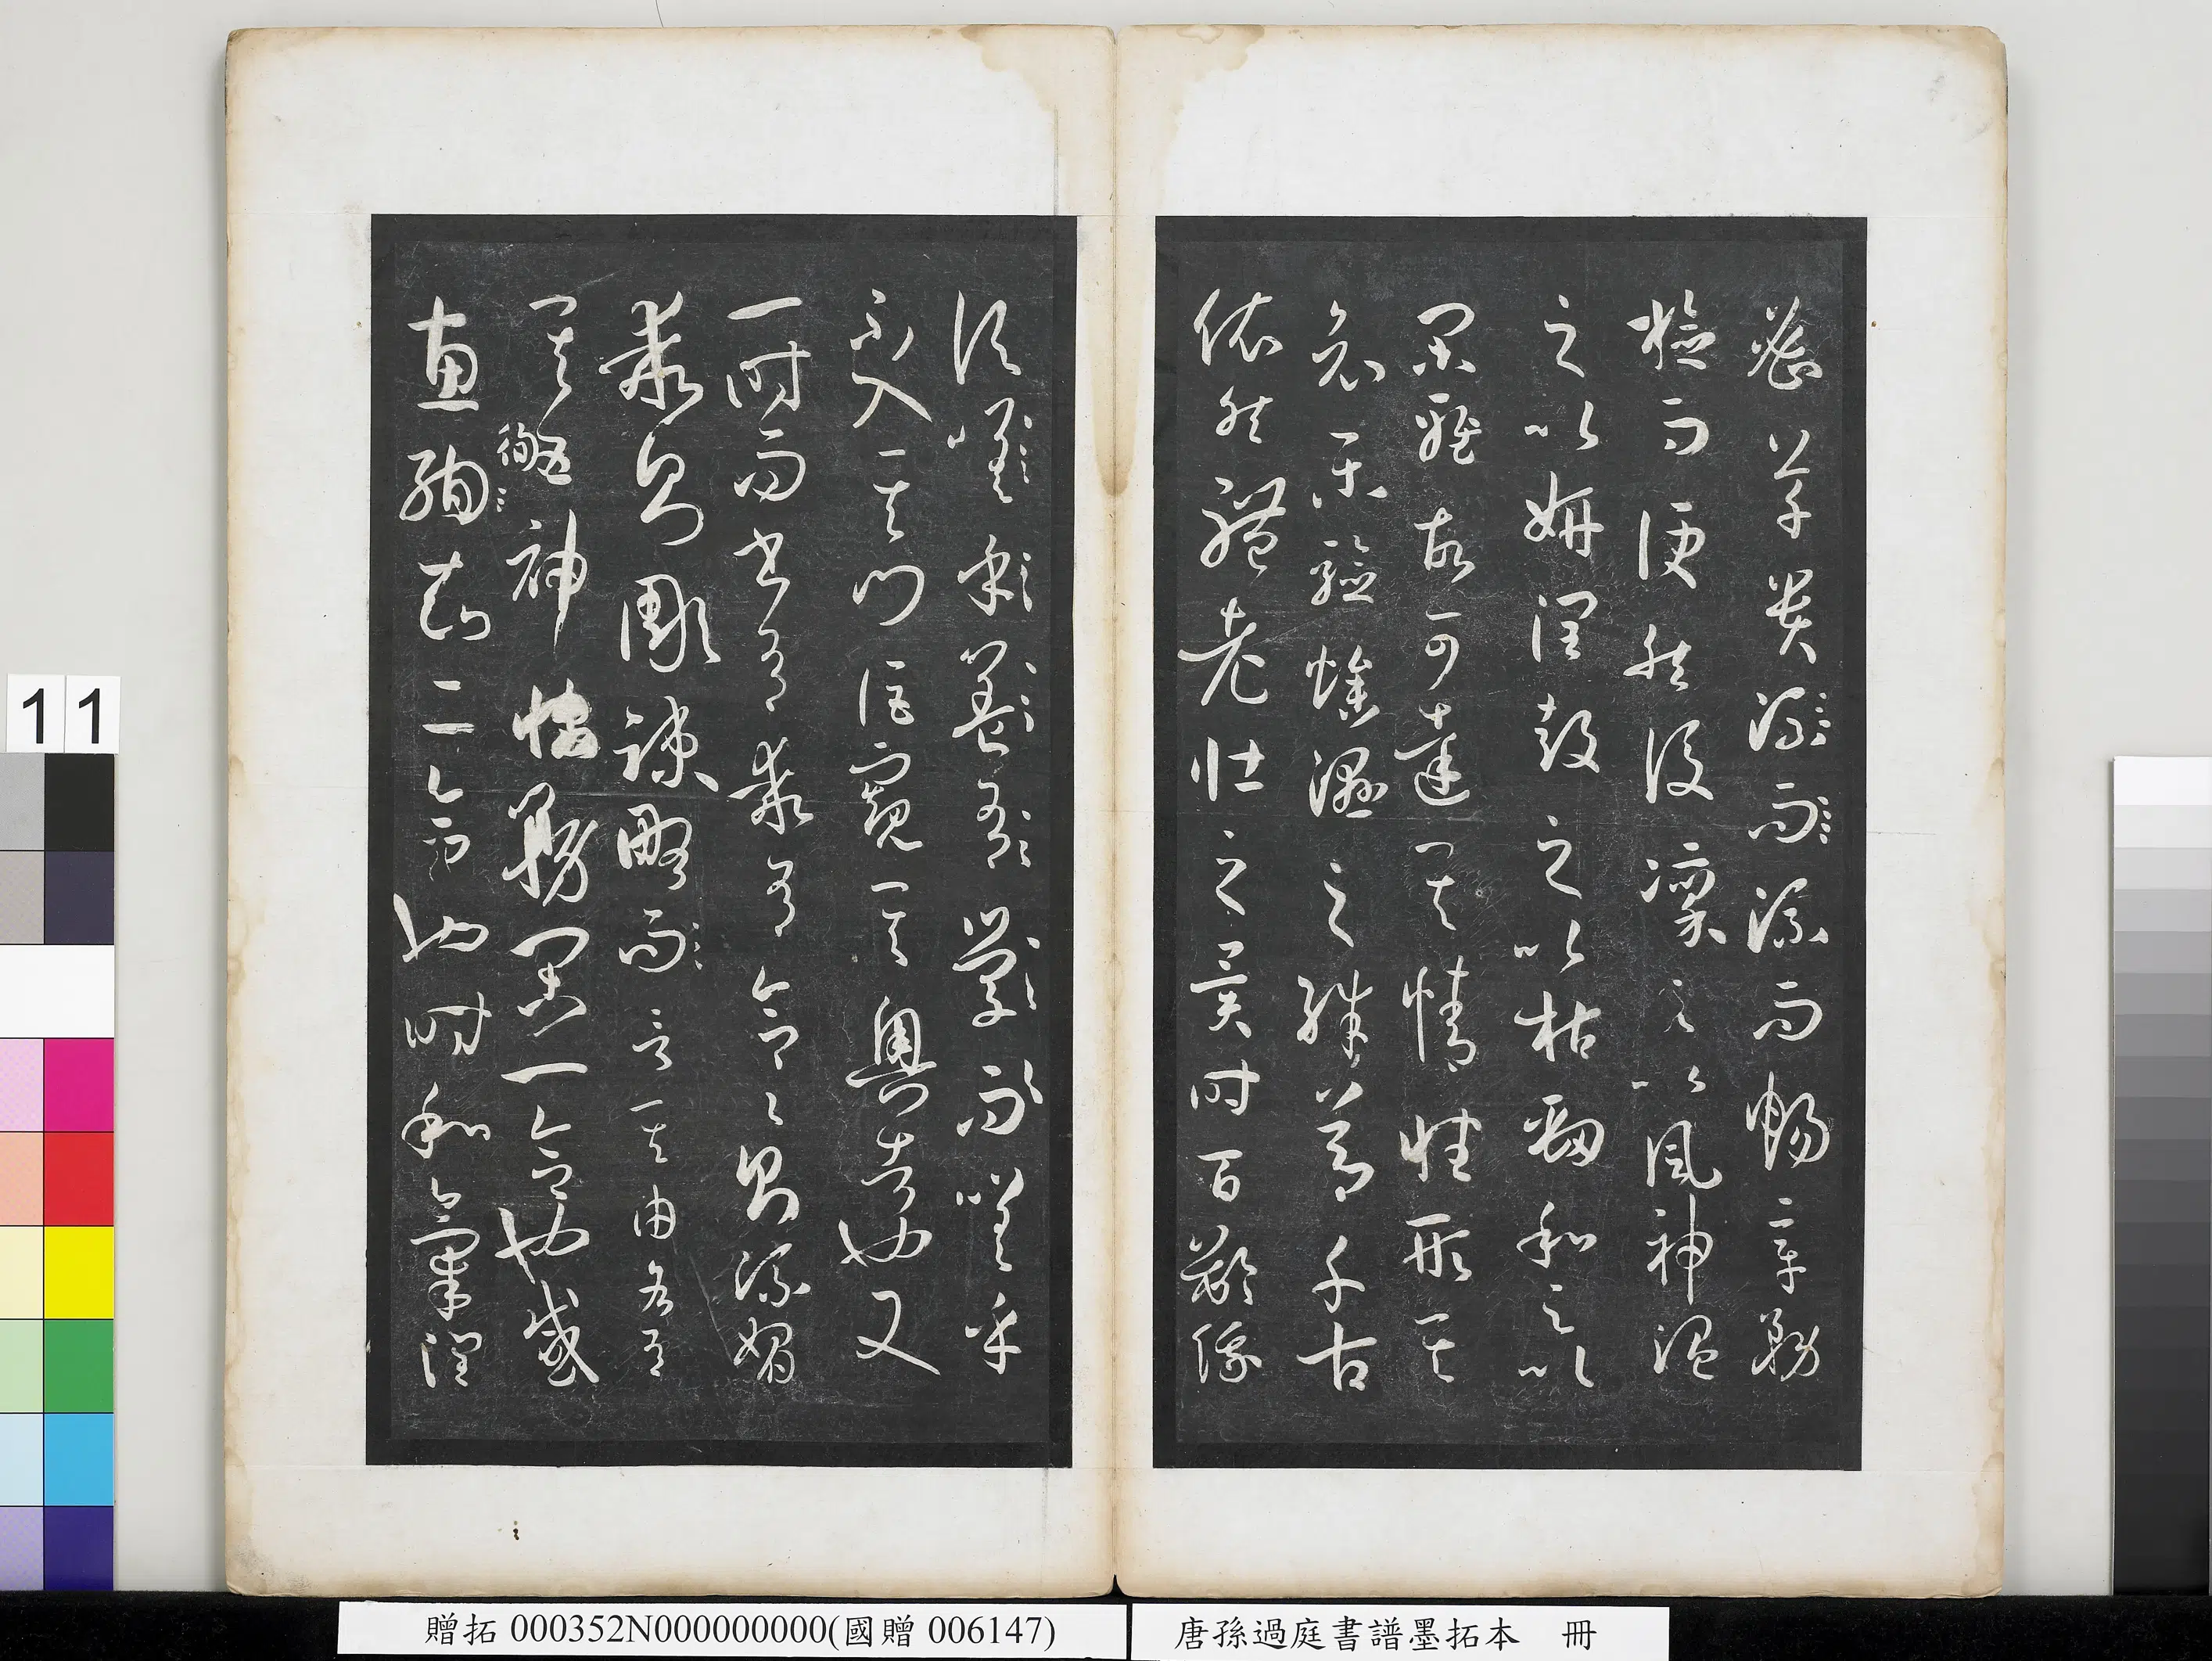 11
密草貴流而流而暢章務
檢而便然後凜之以風神溫
之以妍潤鼓之以枯勁和之以
閑雅故可達其情性形其
哀樂驗燥濕之殊節千古
依然體老壯之異時百齡俄
頃嗟乎蓋有學而嗟乎
不入其門詎窺其奧者也又
一時而書有乖有合合々則流媚
乖則彫疎略而言其由各有
其五神怡務閑一合也感
惠徇知二合也時和氣潤
贈拓 000352N000000000(國贈 006147)
唐孫過庭書譜墨拓本 冊